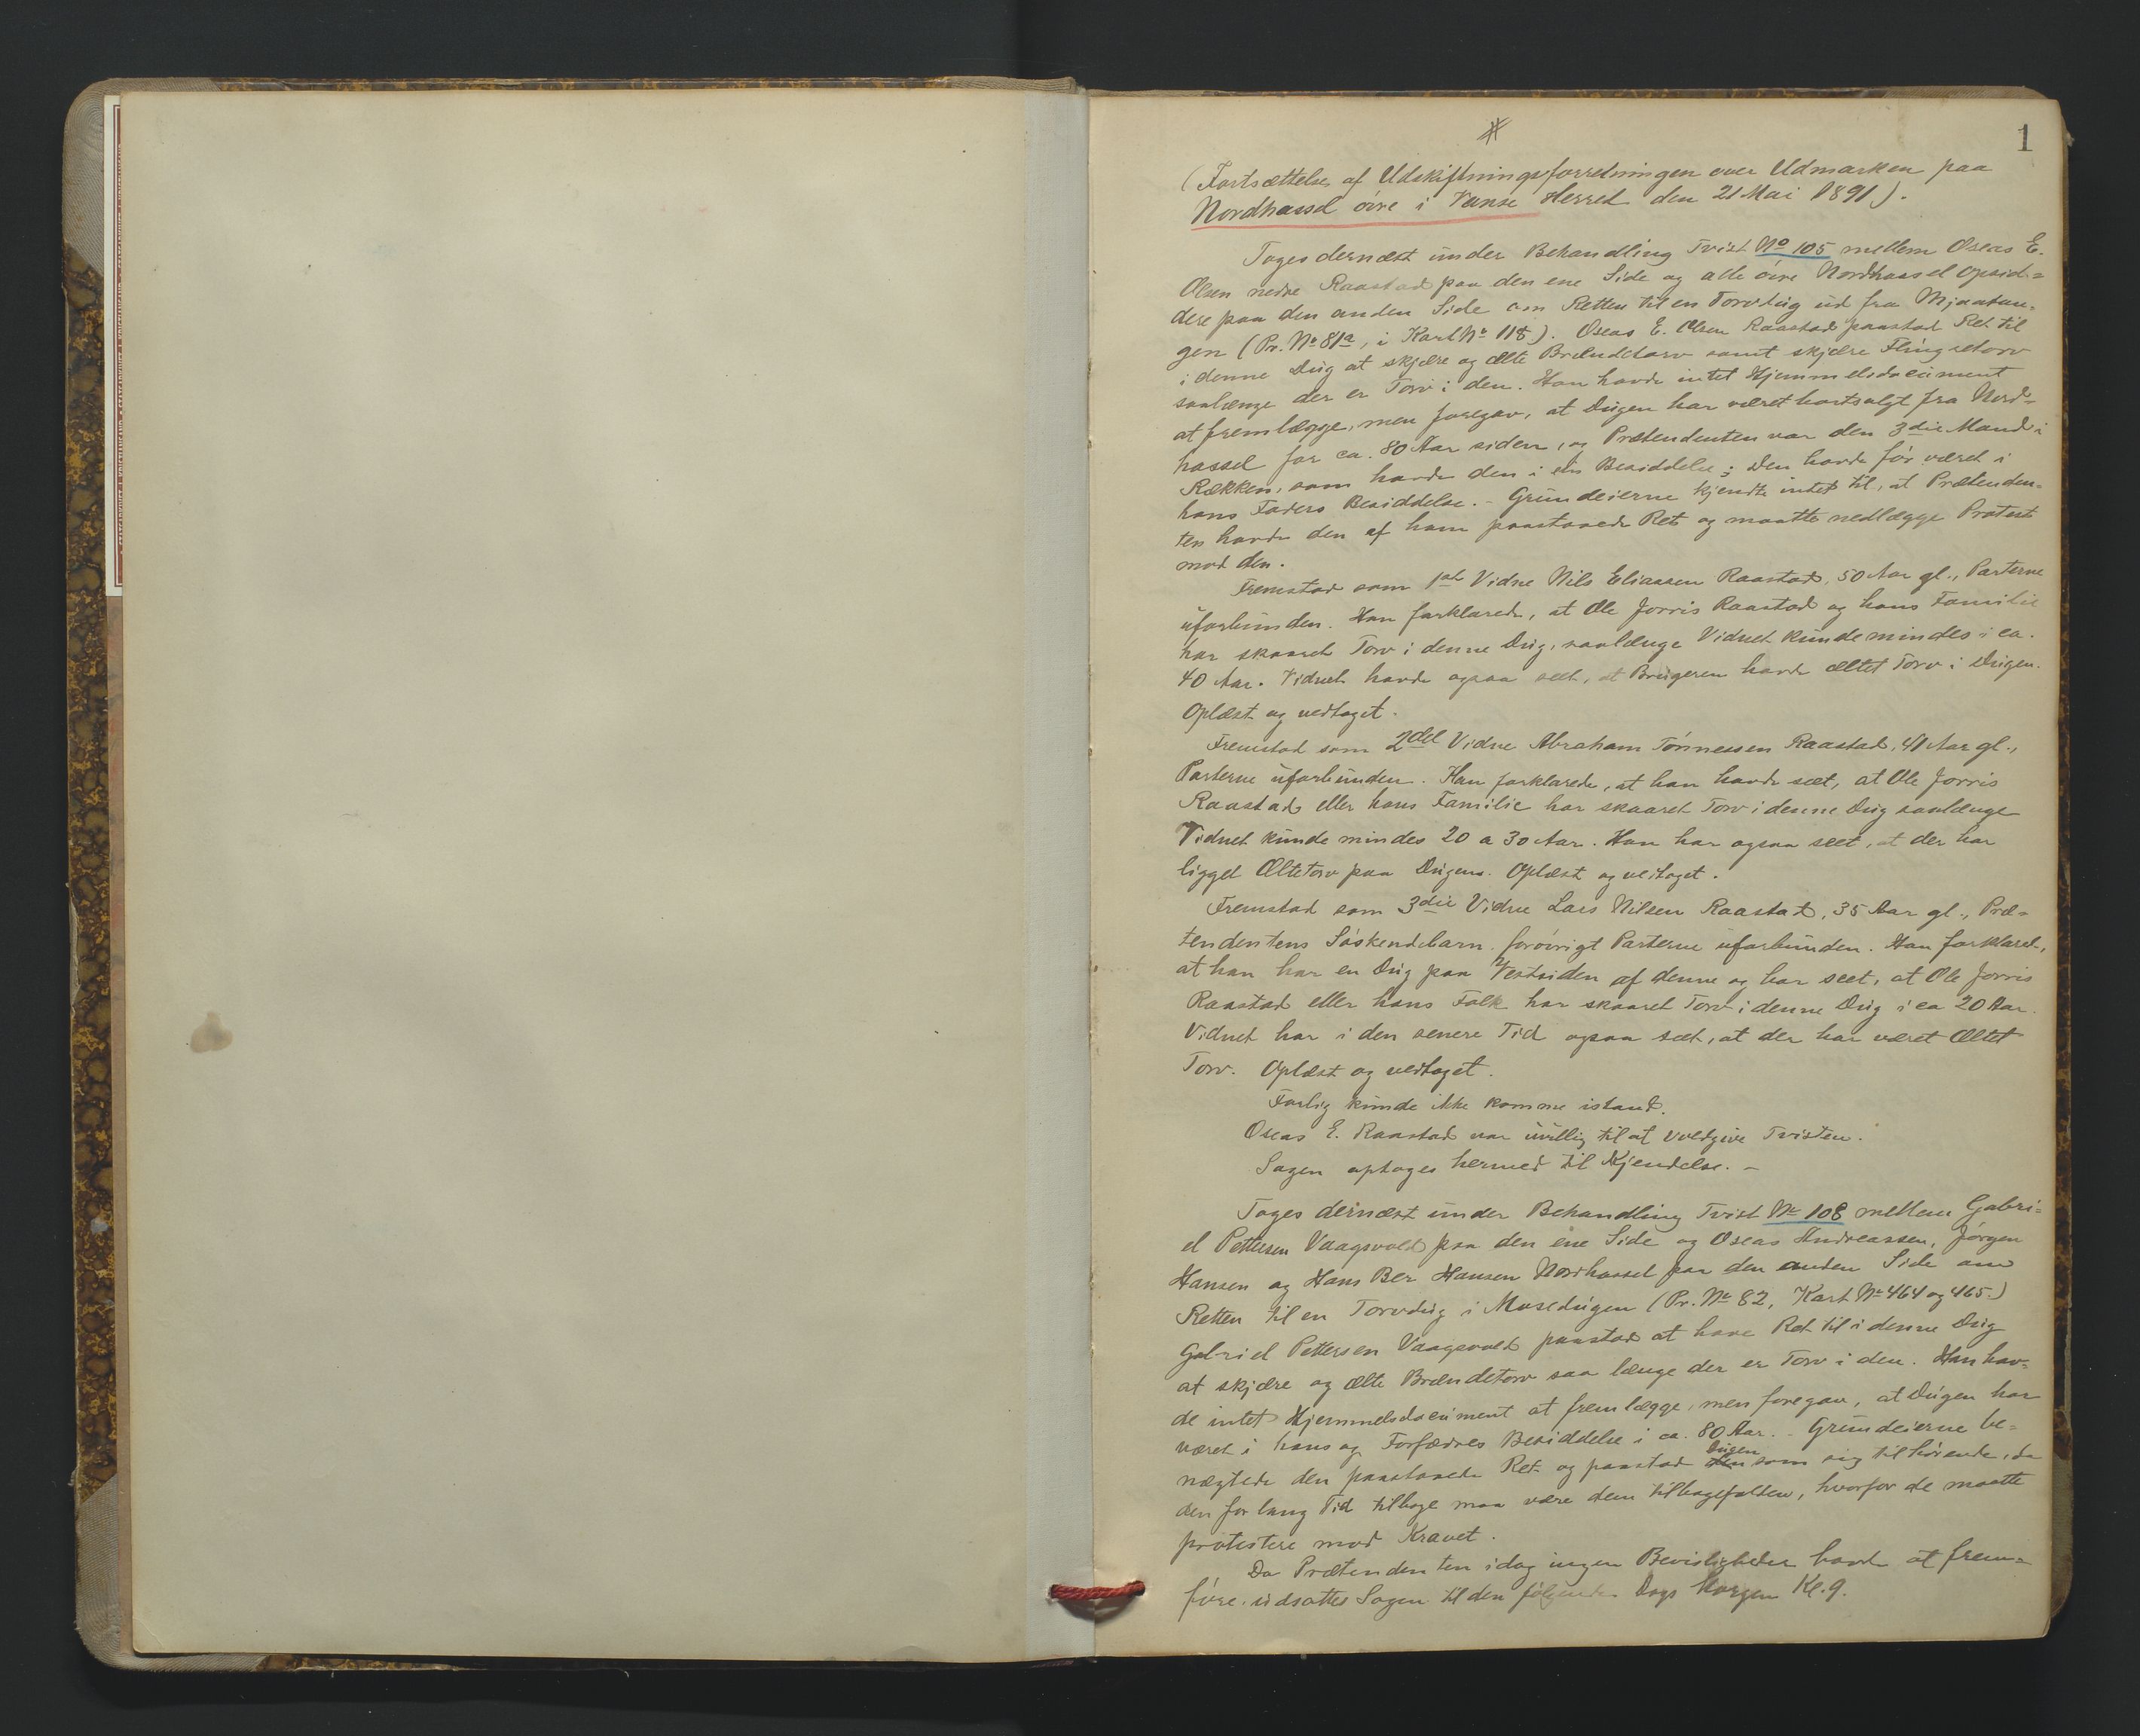 #
1
(Fortsættelse af Udskiftningsforretningen over Udmarken paa
Nordhassel øvre i Vanse Herred den 21 Mai 1891).
Toges dernæst under Behandling Tvist No 105 mellem Oseas E.
Olsen nedre Raastad paa den ene Side og alle øvre Nordhassel Opsid=
dere paa den anden Side om Retten til en Torvdug ud fra Mjaatan=
gen (Pr. No 81a, i Kart No 118). Oseas E. Olsen Raastad paastod Ret til
i denne Dug at skjære og ælte Brændetorv samt skjære Flingretorv
saalænge der er Torv i den. Han havde intet Hjemmelsdocument
at fremlægge, men foregav, at Dugen har været bortsolgt fra Nord=
hassel for ca. 80 Aar siden, og Prætendenten var den 3die Mand i
Rækken, som havde den i sin Besiddelse; den havde før været i
hans Faders Besiddelse. - Grundeierne kjendte intet til, at Prætenden=
ten havde den af ham paastaaede Ret og maatte nedlægge Protest
mod den.
Fremstod som 1st Vidne Nils Eliassen Raastad, 50 Aar gl., Parterne
uforbunden. Han forklarede, at Ole Jorris Raastad og hans Familie
har skaaret Torv i denne Dug, saalænge Vidnet kunde mindes i ca.
40 Aar. Vidnet havde ogsaa seet, at Brugeren havde æltet Torv i Dugen.
Oplæst og vedtaget.
Fremstod som 2det Vidne Abraham Tønnessen Raastad, 41 Aar gl.,
Parterne uforbunden. Han forklarede, at han havde seet, at Ole Jorris
Raastad eller hans Familie har skaaret Torv i denne Dug saalænge
Vidnet kunde mindes 20 a 30 Aar. Han har ogsaa seet, at der har
ligget Æltetorv paa Dugen. Oplæst og vedtaget.
Fremstod som 3die Vidne Lars Nilsen Raastad, 35 Aar gl., Præ=
tendentens Søskendebarn, forøvrigt Parterne uforbunden. Han forklared,
at han har en Dug paa Vestsiden af denne og har seet, at Ole Jorris
Raastad eller hans Folk har skaaret Torv i denne Dug i ca 20 Aar.
Vidnet har i den senere Tid ogsaa seet, at der har været Æltet
Torv. Oplæst og vedtaget.
Forlig kunde ikke komme istand.
Oseas E. Raastad var uvillig til at voldgive Tvisten.
Sagen optoges hermed til Kjendelse. -
Toges dernæst under Behandling Tvist No 108 mellem Gabri=
el Pettersen Vaagsvold paa den ene Side og Oseas Andreassen, Jørgen
Hansen og Hans Ber Hansen Nordhassel paa den anden Side om
Retten til en Torvdug i Mosedugen (Pr. No 82, Kart No 464 og 465.)
Gabriel Pettersen Vaagsvold paastod at have Ret til i denne Dug
at skjære og ælte Brændetorv saa længe der er Torv i den. Han hav=
de intet Hjemmelsdocument at fremlægge, men foregav, at Dugen har
været i hans og Forfædres Besiddelse i ca. 80 Aar. - Grundeierne be=
nægtede den paastaaede Ret og paastod Dugen som sig tilhørende, da
den for lang Tid tilbage maa være dem tilbagefalden, hvorfor de maatte
protestere mod Kravet.
Da Prætendenten idag ingen Bevisligheder havde at frem=
føre, udsattes Sagen til den følgende Dags Morgen Kl. 9.